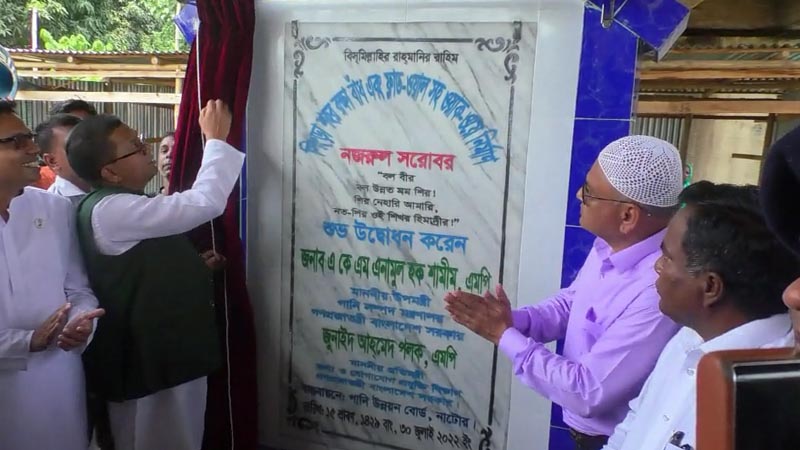 বিস্‌মিল্লাহির রাহ্‌মানির রাহিম
নজরুল সরোবর
"বল বীর
বল উন্নত মম শির!
শির নেহারি আমারি,
নত-শির ওই শিখর হিমাদ্রীর!"
শুভ উদ্বোধন করেন
জনাব এ কে এম এনামুল হক শামীম, এমপি
মাননীয় উপমন্ত্রী
পানি সম্পদ মন্ত্রণালয়
গণপ্রজাতন্ত্রী বাংলাদেশ সরকার
জুনাইদ আহ্‌মেদ পলক, এমপি
মাননীয় প্রতিমন্ত্রী
তথ্য ও যোগাযোগ প্রযুক্তি বিভাগ
গণপ্রজাতন্ত্রী বাংলাদেশ সরকার।
বাস্তবায়নে: পানি উন্নয়ন বোর্ড, নাটোর।
তারিখ: ১৫ শ্রাবণ, ১৪২৯ বাং, ৩০ জুলাই ২০২২ ইং